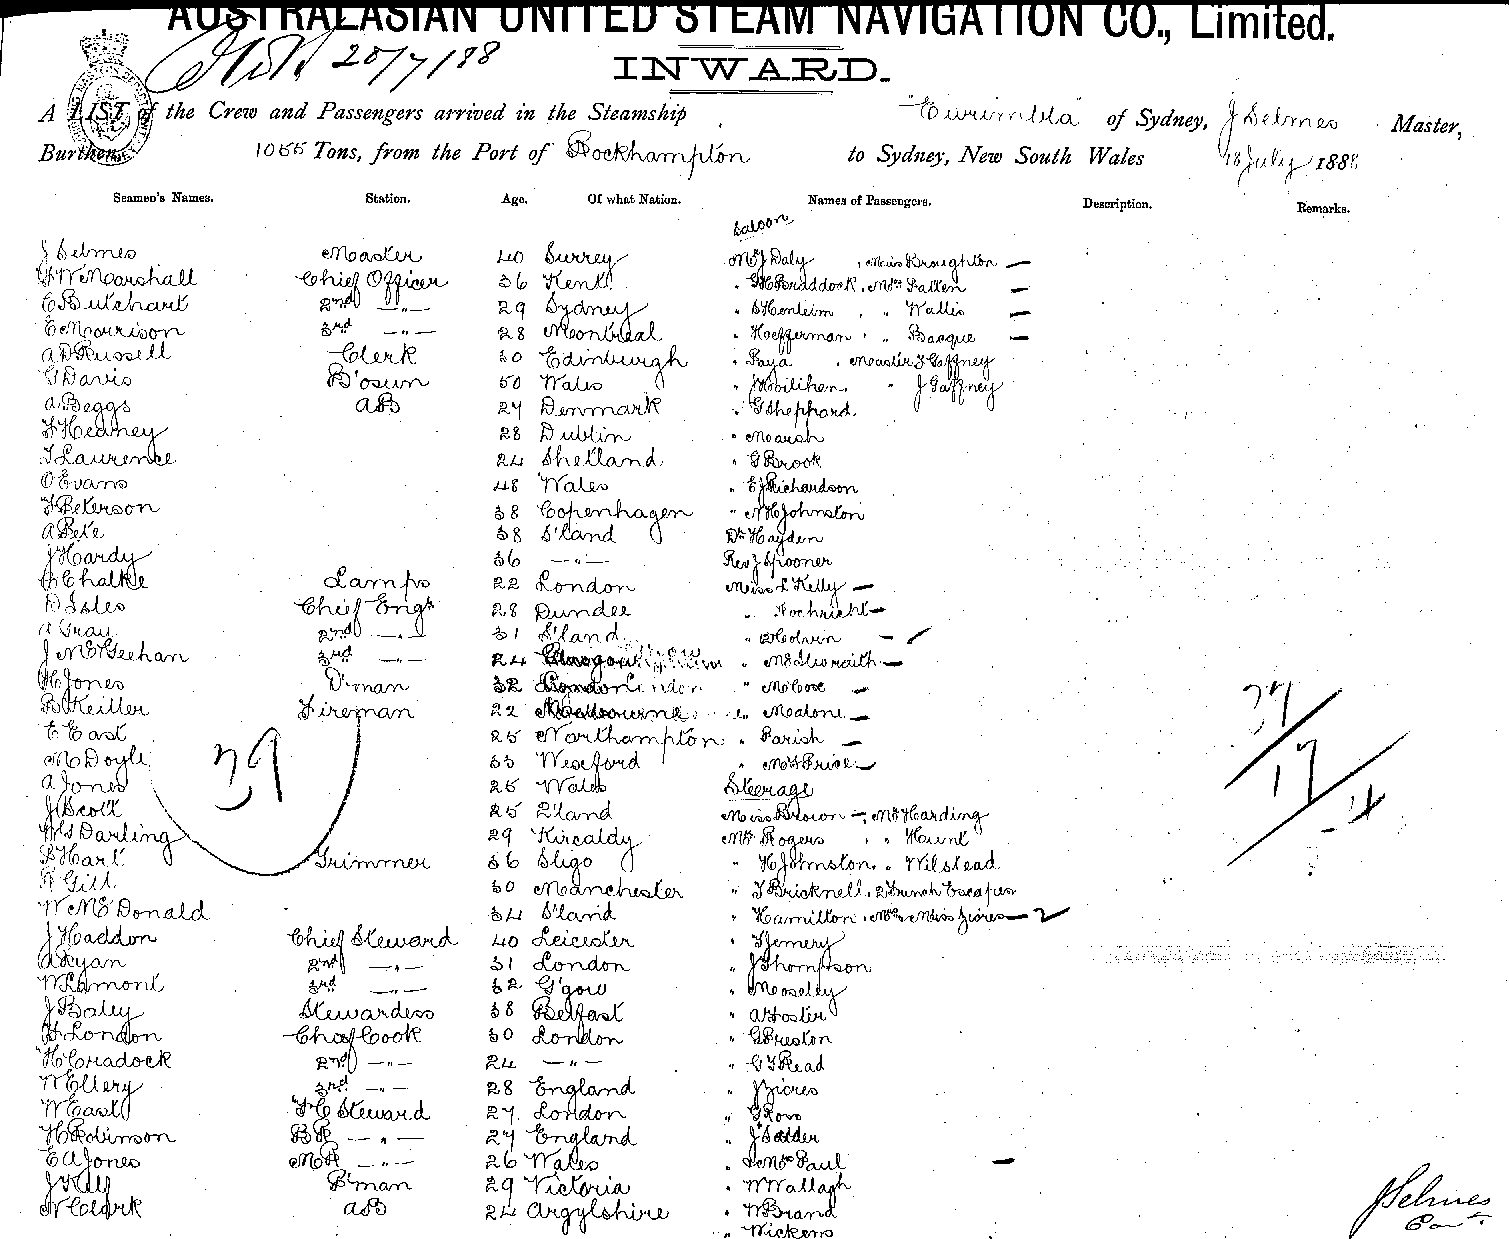 AUSTRALASIAN UNITED STEAM NAVIGATION CO., Limited.
20/7/88
INWARD.
A LIST of the Crew and Passengers arrived in the Steamship "Eurimbla" of Sydney, J Selmes Master,
Burthen 1055 Tons, from the Port of Rockhampton to Sydney, New South Wales 18 July 1888
Seamen's Names. Station. Age. Of what Nation. Names of Passengers. Description. Remarks.
Saloon
J Selmes Master 40 Surrey Mr J Daly , Miss Broughton —
W Marshall Chief Officer 36 Kent " Braddock , Mrs Patten —
E Butchart 2nd —"— 29 Sydney " , " Wallis —
E Morrison 3rd —"— 28 Montreal " Heffernan , " Basque —
A D Russell Clerk 30 Edinburgh " Paya , Master F Gaffney
G Davis B'osun 50 Wales " " J Gaffney
A Beggs AB 27 Denmark " G Shephard
Heaney 28 Dublin " Marsh
T Laurence 24 Shetland " G Brook
O Evans 48 Wales " E J Richardson
Peterson 38 Copenhagen " N H Johnston
A Pete 38 S'land Dr Hayden
J Hardy 36 —"— Rev J Spooner
Chalke Lamps 22 London Miss L Kelly —
D Isles Chief Engr 28 Dundee " —
A Gray 2nd —"— 31 S'land " —
J McGeehan 3rd —"— 24 Glasgow " McIlwraith —
H Jones D'man 32 London London " McCose —
B Keiller Fireman 22 Melbourne " Malone —
E East 25 Northampton " Parish —
M Doyle 33 Wexford " Price —
A Jones 25 Wales Steerage
J Scott 25 S'land Miss Brown — , Mr Harding
Darling 29 Kircaldy Mr Rogers , " Hunt
Hart Trimmer 36 Sligo " H Johnston , " Wilstead
Gill 30 Manchester " T Bricknell , 2 French Escapes
W McDonald 34 S'land " Hamilton , Mrs & Miss Zieres — 2
J Haddon Chief Steward 40 Leicester " Jemery
A Ryan 2nd —"— 31 London " J Thompson
W Lamont 3rd —"— 32 G'gow " Moseley
J Baley Stewardess 38 Belfast " A Foster
H London Chief Cook 30 London " G Preston
H Cradock 2nd —"— 24 —"— " G T Read
W Ellery 3rd —"— 28 England " J Zieres
W East F C Steward 27 London " G Ross
H Robinson BR —"— 27 England "
E A Jones MR —"— 26 Wales " & Mrs Paul —
J P'man 29 Victoria " W Wallagh
N Clark AB 24 Argylshire " W Brand
" Wickens
39
37
17
4
J Selmes